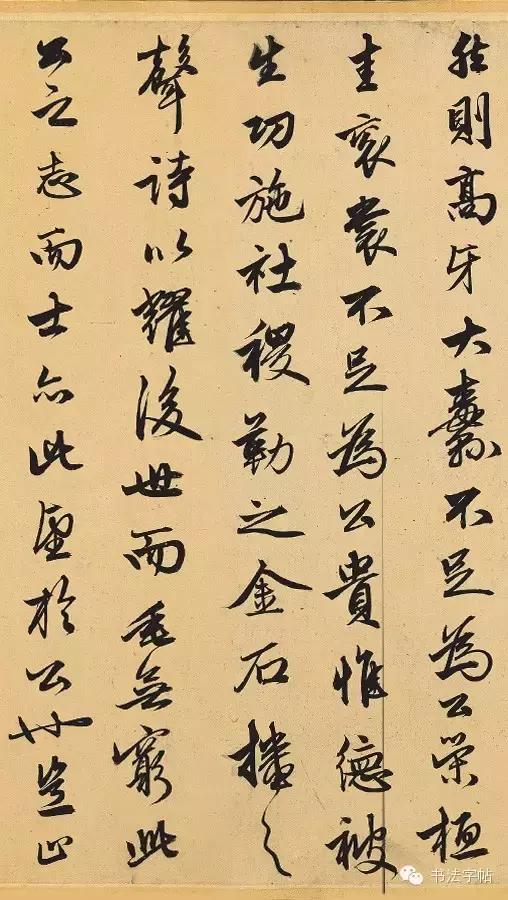 然則高牙大纛不足為公榮桓
圭袞裳不足為公貴惟德被
生功施社稷勒之金石播之
聲詩以耀後世而垂無窮此
公之志而士亦此望於公也豈止
书法字帖